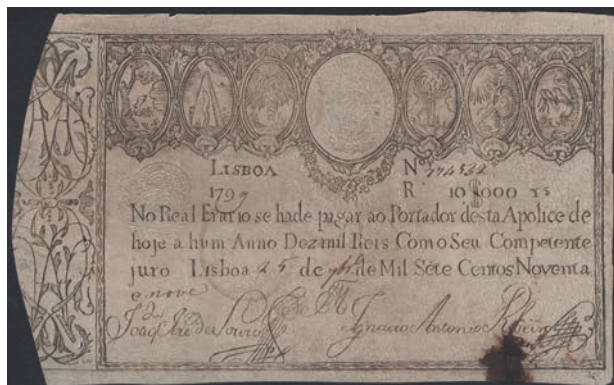 LISBOA Nº
1799 R 10$000 rs
No Real Erario se hade pagar ao Portador desta Apolice de
hoje a hum Anno Dez mil Reis Com o Seu Competente
juro Lisboa 25 de de Mil Sete Centos Noventa
e nove
Ignacio Antonio Ribeiro